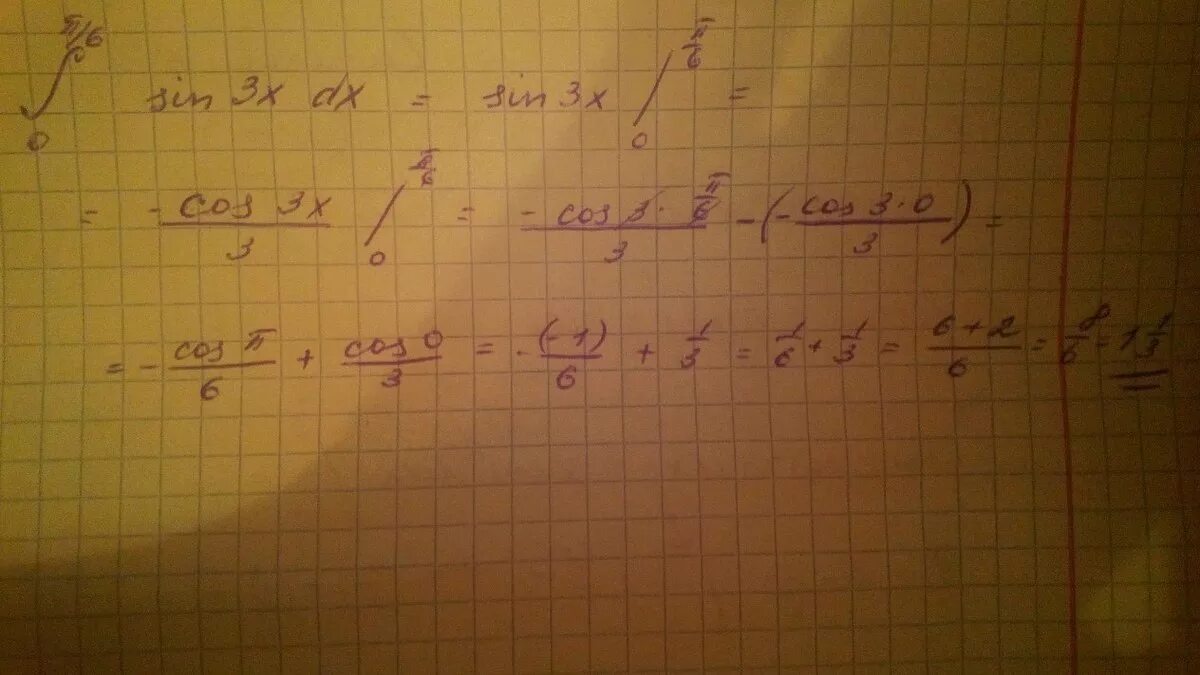 ∫₀^(π/6) sin 3x dx = sin 3x /₀^(π/6) =
= - cos 3x / 3 /₀^(π/6) = - cos 3·π/6 / 3 - (- cos 3·0 / 3) =
= - cos π / 6 + cos 0 / 3 = - (-1) / 6 + 1/3 = 1/6 + 1/3 = 6+2 / 6 = 8/6 = 1 1/3